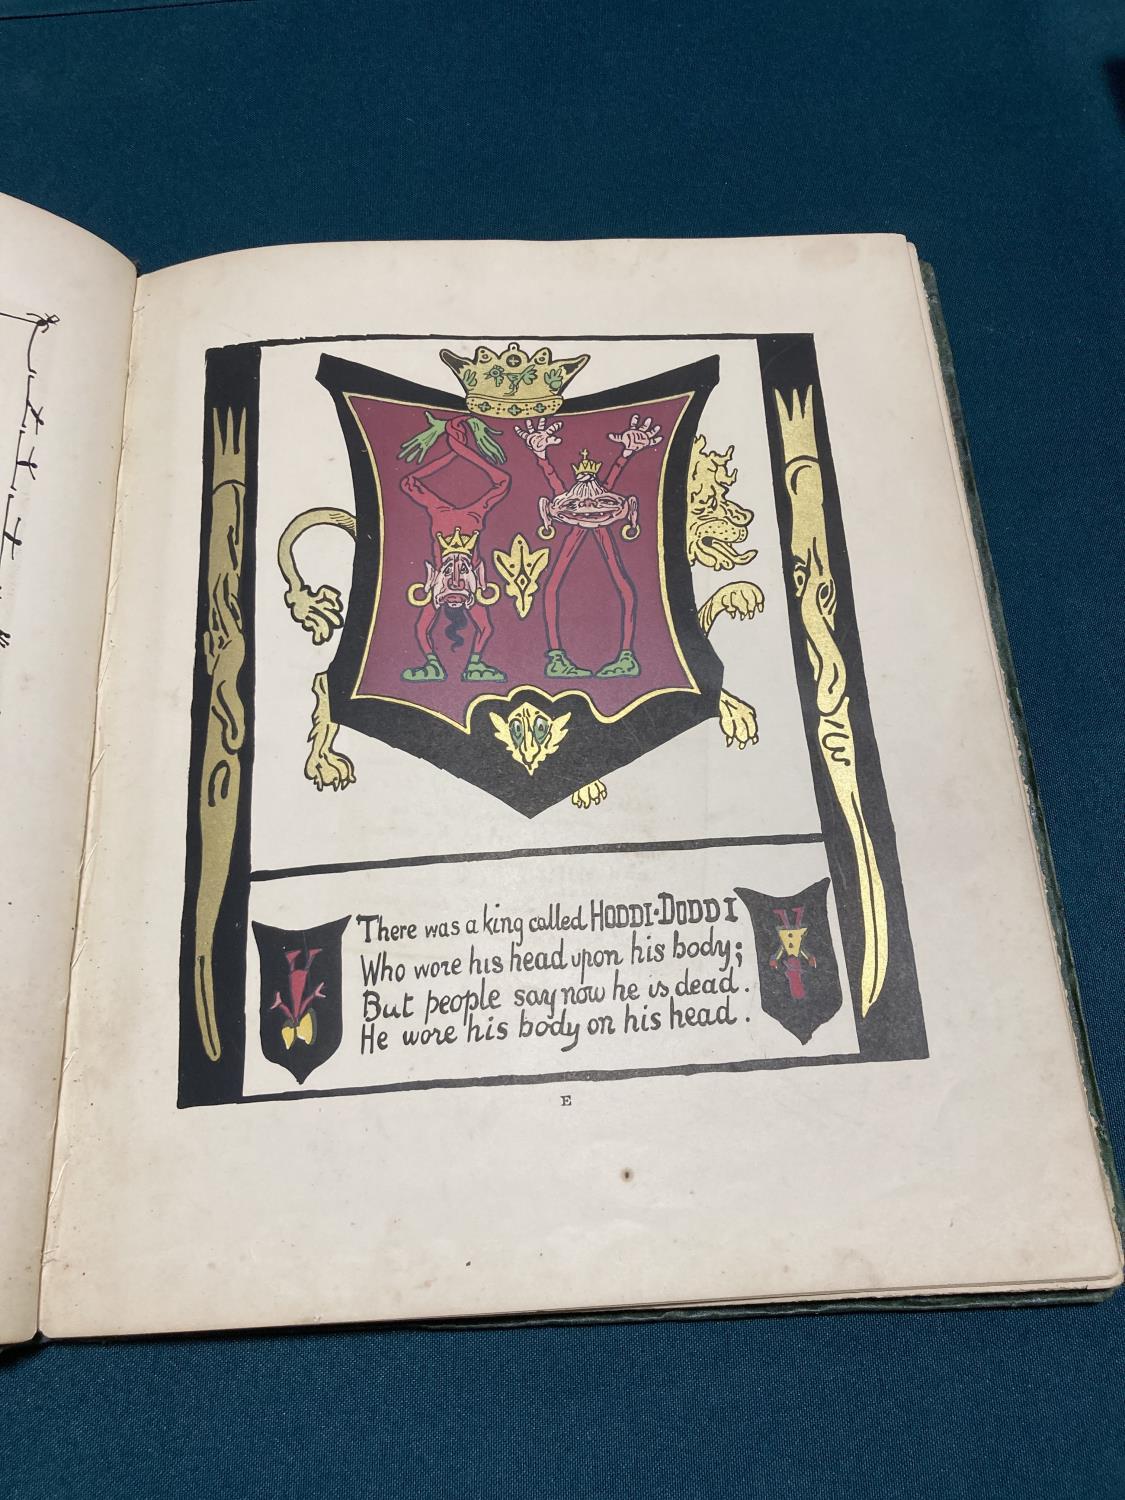 There was a king called HODDI-DODDI
Who wore his head upon his body;
But people say now he is dead.
He wore his body on his head.
E